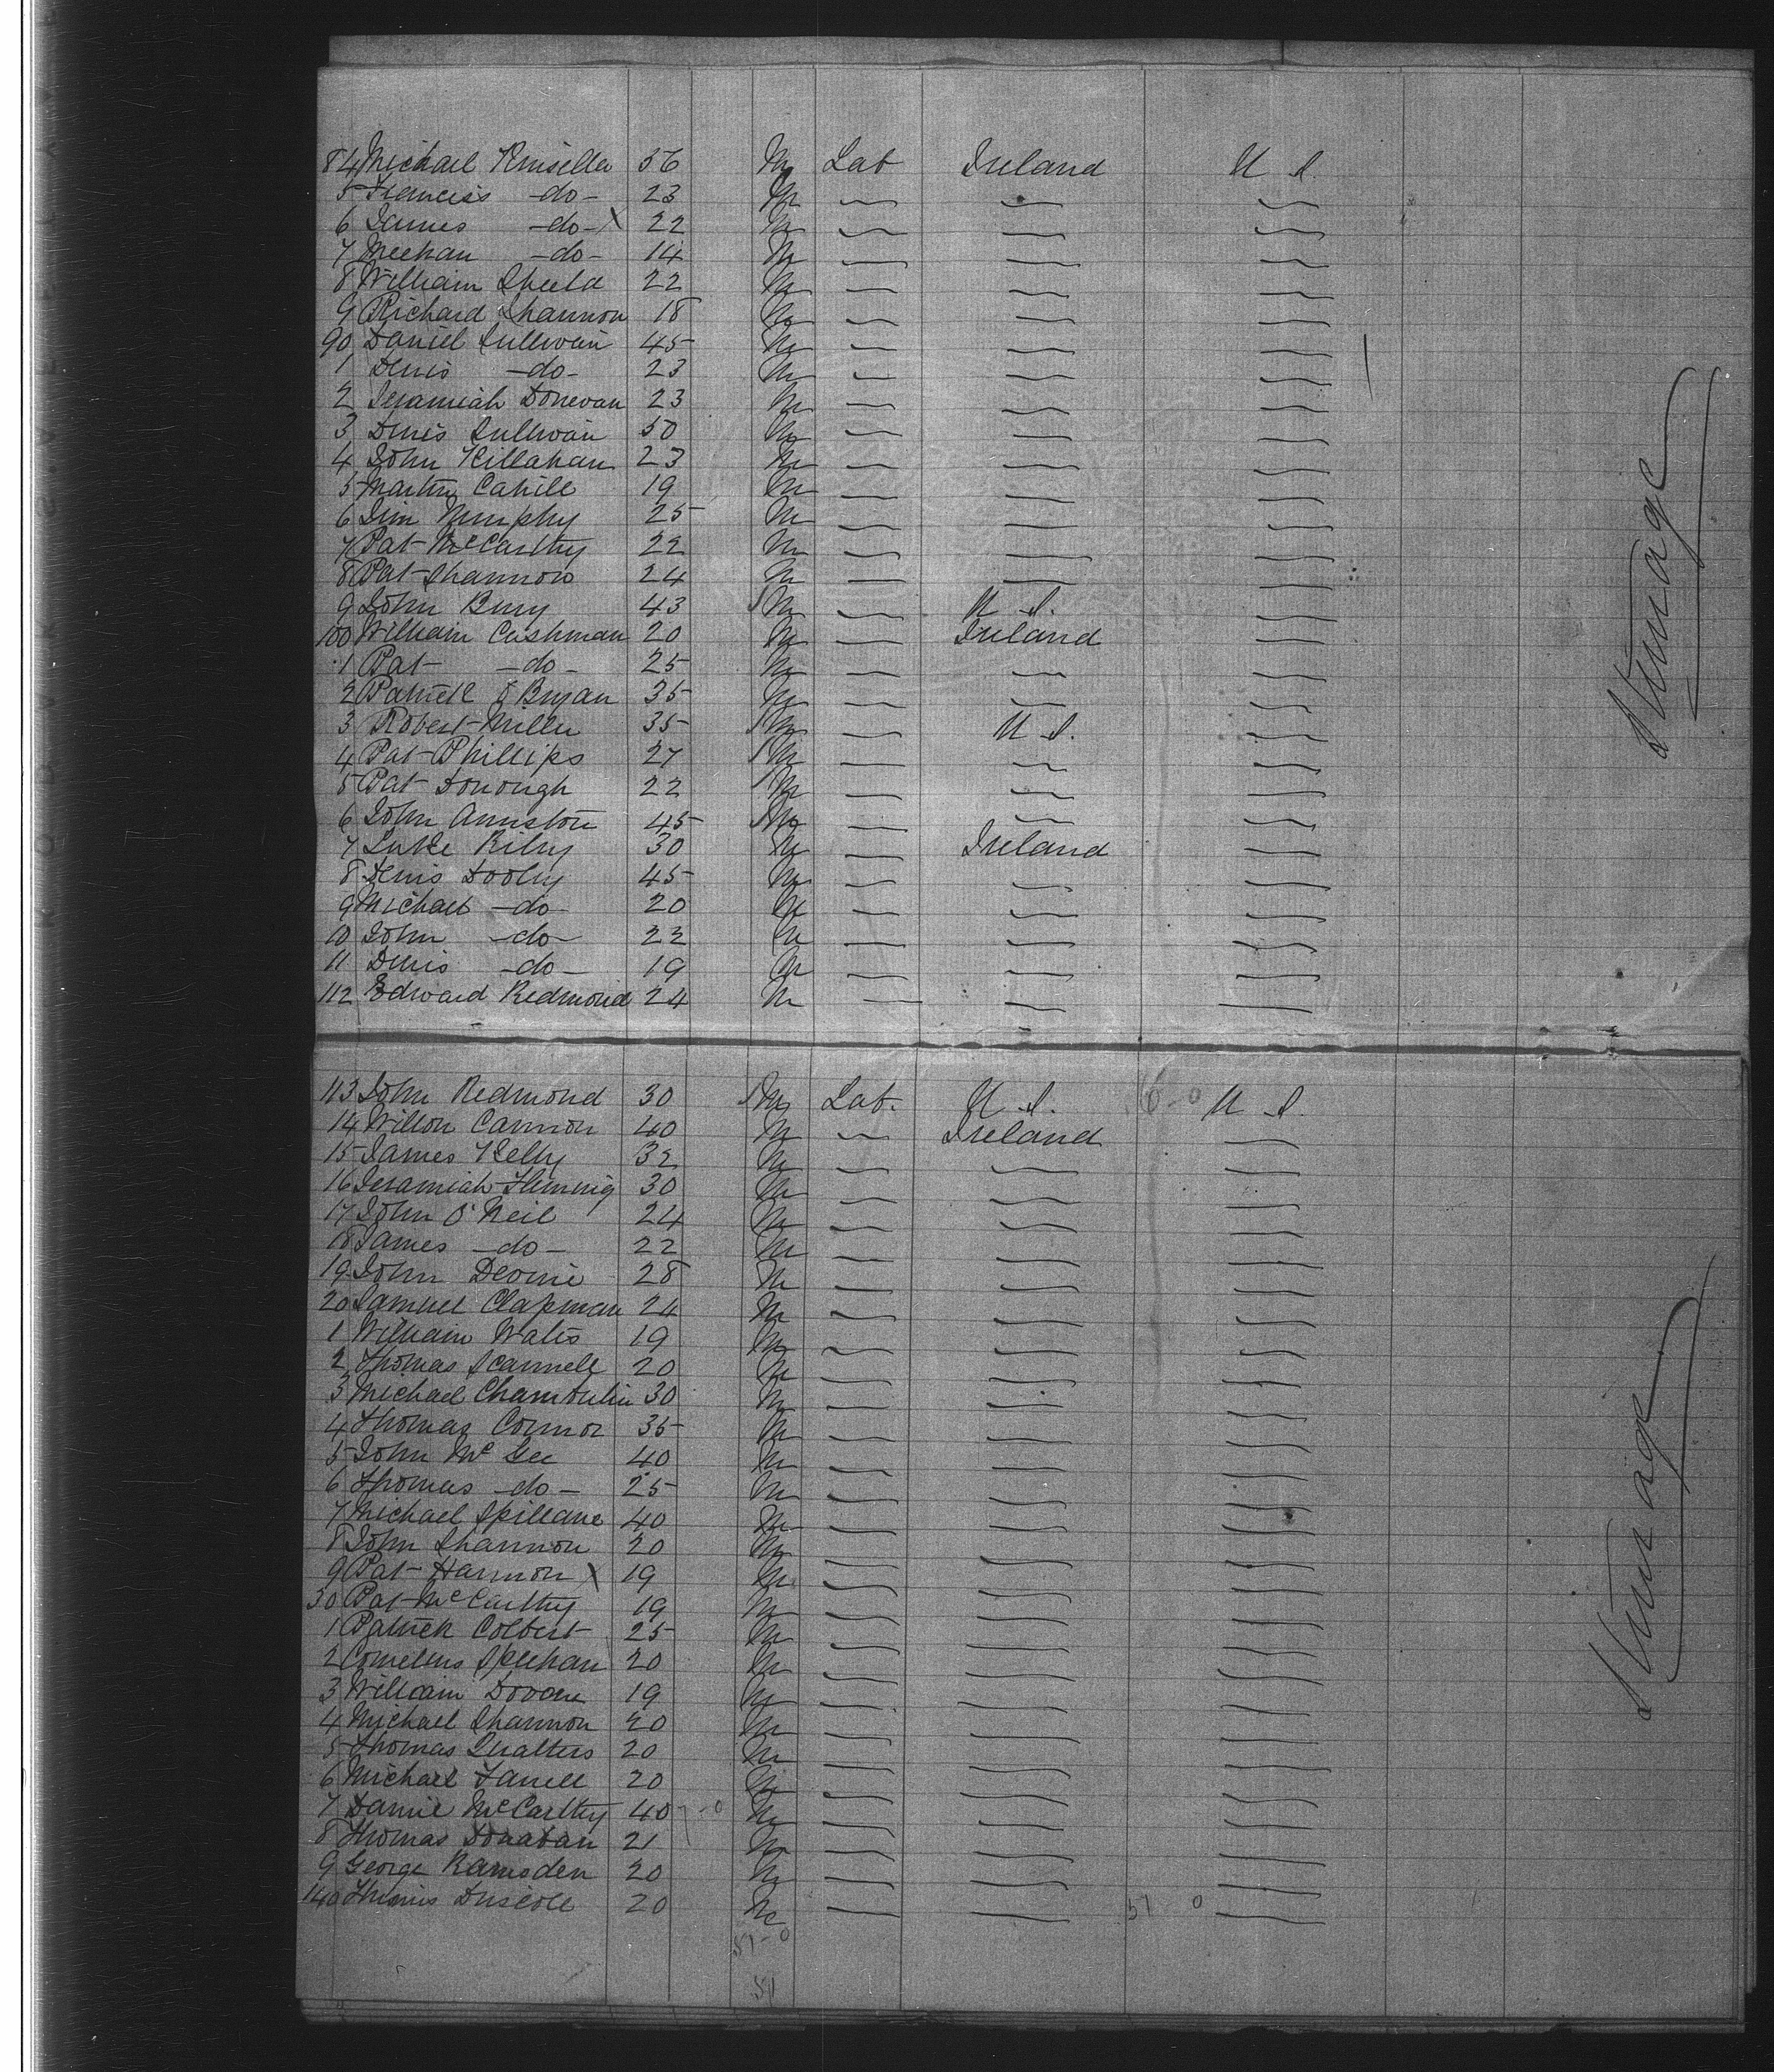 84 Michael Kinsella 56 M Lab Ireland U S.
5 Francis -do- 23 M
6 James -do- X 22 M
7 Meehan -do- 14 M
8 William Sheeld 22 M
9 Richard Shannon 18 M
90 Daniel Sullivan 45 M
1 Denis -do- 23 M
2 Jeramiah Donevan 23 M
3 Denis Sullivan 50 M
4 John Killahan 23 M
5 Martin Cahill 19 M
6 Jim Murphy 25 M
7 Pat McCarthy 22 M
8 Pat Shannon 24 M
9 John Bury 43 M U S.
100 William Cushman 20 M Ireland
1 Pat -do- 25 M
2 Patrick O Bryan 35 M
3 Robert Miller 35 M U S.
4 Pat Phillips 27 M
5 Pat Donough 22 M
6 John Anniston 45 M
7 Luke Riley 30 M Ireland
8 Denis Dooley 45 M
9 Michael -do- 20 M
10 John -do- 22 M
11 Denis -do- 19 M
112 Edward Redmond 24 M
Steerage
113 John Redmond 30 M Lab. U S. 6-0 U S.
14 Cannon 40 M Ireland
15 James Kelly 32 M
16 Jeramiah Fleming 30 M
17 John O'Neil 24 M
18 James -do- 22 M
19 John Devine 28 M
20 Samuel Clapman 24 M
1 William Walts 19 M
2 Thomas Scannell 20 M
3 Michael 30 M
4 Thomas Connor 35 M
5 John Mc Gee 40 M
6 Thomas -do- 25 M
7 Michael Spillane 40 M
8 John Shannon 20 M
9 Pat Hannon X 19 M
30 Pat McCarthy 19 M
1 Patrick Colbert 25 M
2 Cornelius Speehan 20 M
3 William Dovan 19 M
4 Michael Shannon 20 M
5 Thomas Qualters 20 M
6 Michael Farrell 20 M
7 Daniel McCarthy 40 M
8 Thomas Donavan 21 M
9 George Ramsden 20 M
140 Driscoll 20 M 51 0
51-0
51
Steerage